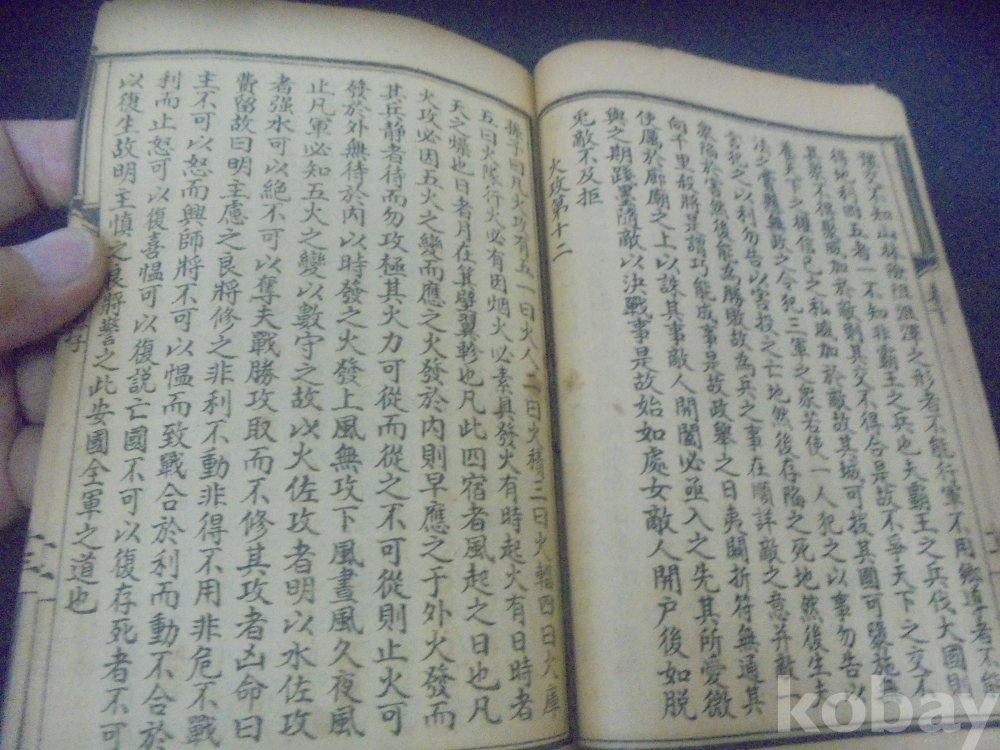 豫交不知山林險阻沮澤之形者不能行軍不用鄉導者不能
得地利四五者一不知非霸王之兵也夫霸王之兵伐大國則
其眾不得聚威加於敵則其交不得合是故不爭天下之交不
養天下之權信己之私威加於敵故其城可拔其國可隳施無
法之賞懸無政之令犯三軍之眾若使一人犯之以事勿告以
言犯之以利勿告以害投之亡地然後存陷之死地然後生夫
眾陷於害然後能為勝敗故為兵之事在順詳敵之意并敵一
向千里殺將是謂巧能成事是故政舉之日夷關折符無通其
使厲於廊廟之上以誅其事敵人開闔必亟入之先其所愛微
與之期踐墨隨敵以決戰事是故始如處女敵人開户後如脫
兔敵不及拒
火攻第十二
孫子曰凡火攻有五一曰火人二曰火積三曰火輜四曰火庫
五曰火隊行火必有因烟火必素具發火有時起火有日時者
天之燥也日者月在箕壁翼軫也凡此四宿者風起之日也凡
火攻必因五火之變而應之火發於內則早應之于外火發而
其兵静者待而勿攻極其火力可從而從之不可從則止火可
發於外無待於內以時發之火發上風無攻下風晝風久夜風
止凡軍必知五火之變以數守之故以火佐攻者明以水佐攻
者强水可以絶不可以奪夫戰勝攻取而不修其攻者凶命曰
費留故曰明主慮之良將修之非利不動非得不用非危不戰
主不可以怒而興師將不可以愠而致戰合於利而動不合於
利而止怒可以復喜愠可以復説亡國不可以復存死者不可
以復生故明主慎之良將警之此安國全軍之道也
kobay